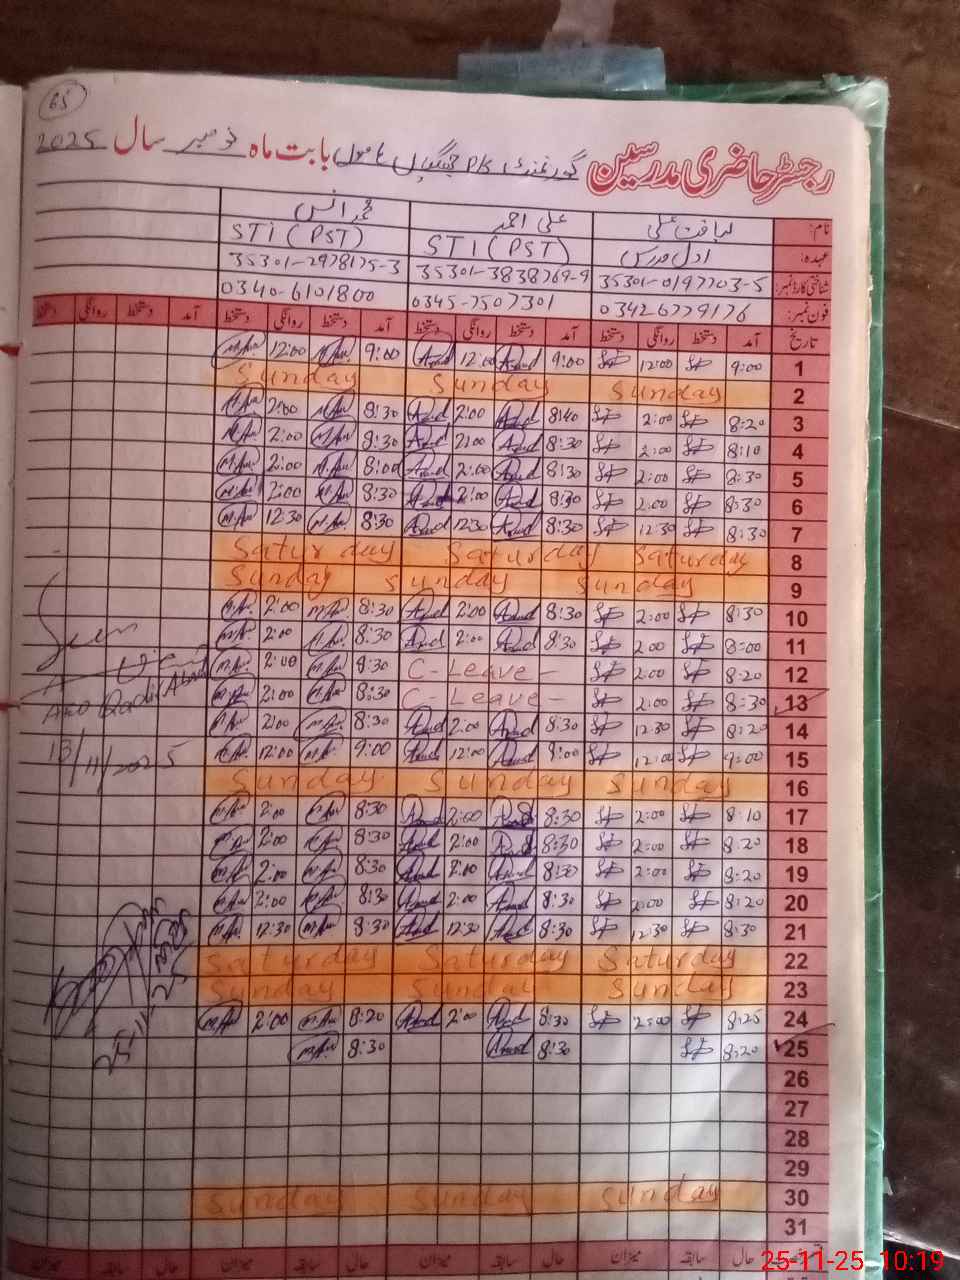 65
رجسٹر حاضری مدرسین گورنمنٹ P/S بابت ماہ نومبر سال 2025
نام: لیاقت علی علی احمد محمد انس
عہدہ: اول مدرس STI (PST) STI (PST)
شناختی کارڈ نمبر: 35301-0197703-5 35301-3838769-9 35301-2978175-3
فون نمبر: 03426779176 0345-7507301 0340-6101800
تاریخ آمد دستخط روانگی دستخط آمد دستخط روانگی دستخط آمد دستخط روانگی دستخط آمد دستخط روانگی دستخط
1 9:00 12:00 9:00 12:00 9:00 12:00
2 Sunday Sunday Sunday
3 8:20 2:00 8:40 2:00 8:30 2:00
4 8:10 2:00 8:30 2:00 8:30 2:00
5 8:30 2:00 8:30 2:00 8:00 2:00
6 8:30 2:00 8:30 2:00 8:30 2:00
7 8:30 12:30 8:30 12:30 8:30 12:30
8 Saturday Saturday Saturday
9 Sunday Sunday Sunday
10 8:30 2:00 8:30 2:00 8:30 2:00
11 8:00 2:00 8:30 2:00 8:30 2:00
12 8:20 2:00 C-Leave- 8:30 2:00
13 8:30 2:00 C-Leave- 8:30 2:00
14 8:20 12:30 8:30 2:00 8:30 2:00
15 9:00 12:00 9:00 12:00 9:00 12:00
16 Sunday Sunday Sunday
17 8:10 2:00 8:30 2:00 8:30 2:00
18 8:20 2:00 8:30 2:00 8:30 2:00
19 8:20 2:00 8:30 2:00 8:30 2:00
20 8:20 2:00 8:30 2:00 8:30 2:00
21 8:30 12:30 8:30 12:30 8:30 12:30
22 Saturday Saturday Saturday
23 Sunday Sunday Sunday
24 8:25 2:00 8:30 2:00 8:20 2:00
25 8:20 8:30 8:30
26
27
28
29
30 Sunday Sunday Sunday
31
حال سابقہ میزان حال سابقہ میزان حال سابقہ میزان
Seen
13/11/2025
25-11-25 10:19